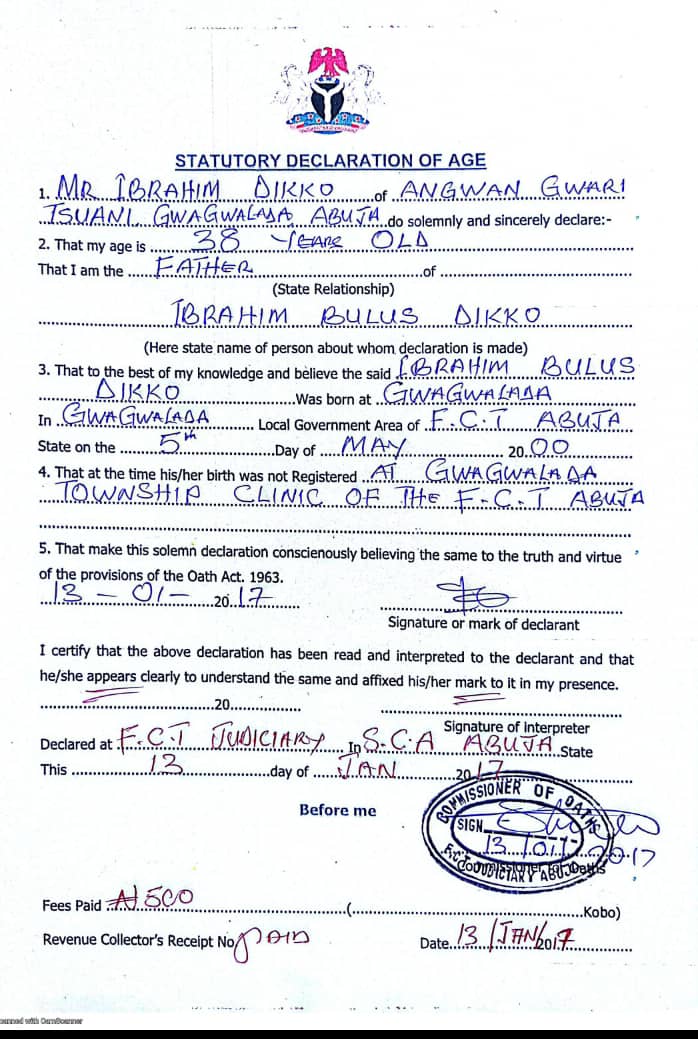 STATUTORY DECLARATION OF AGE
1. MR IBRAHIM DIKKO of ANGWAN GWARI
TSUANI GWAGWALADA, ABUJA do solemnly and sincerely declare:-
2. That my age is 38 YEARS OLD
That I am the FATHER of
(State Relationship)
IBRAHIM BULUS DIKKO
(Here state name of person about whom declaration is made)
3. That to the best of my knowledge and believe the said IBRAHIM BULUS
DIKKO Was born at GWAGWALADA
In GWAGWALADA Local Government Area of F.C.T ABUJA
State on the 5th Day of MAY 2000
4. That at the time his/her birth was not Registered AT GWAGWALADA
TOWNSHIP CLINIC OF THE F.C.T ABUJA
5. That make this solemn declaration conscienously believing the same to the truth and virtue
of the provisions of the Oath Act. 1963.
13 - 01 - 2017
Signature or mark of declarant
I certify that the above declaration has been read and interpreted to the declarant and that
he/she appears clearly to understand the same and affixed his/her mark to it in my presence.
20
Signature of Interpreter
Declared at F.C.T JUDICIARY In S.C.A ABUJA State
This 13 day of JAN 2017
Before me
COMMISSIONER OF OATHS
SIGN
13/01/2017
F.C.T JUDICIARY ABUJA
Fees Paid ₦500 (Kobo)
Revenue Collector's Receipt No PAID Date 13/JAN/2017
Scanned with CamScanner